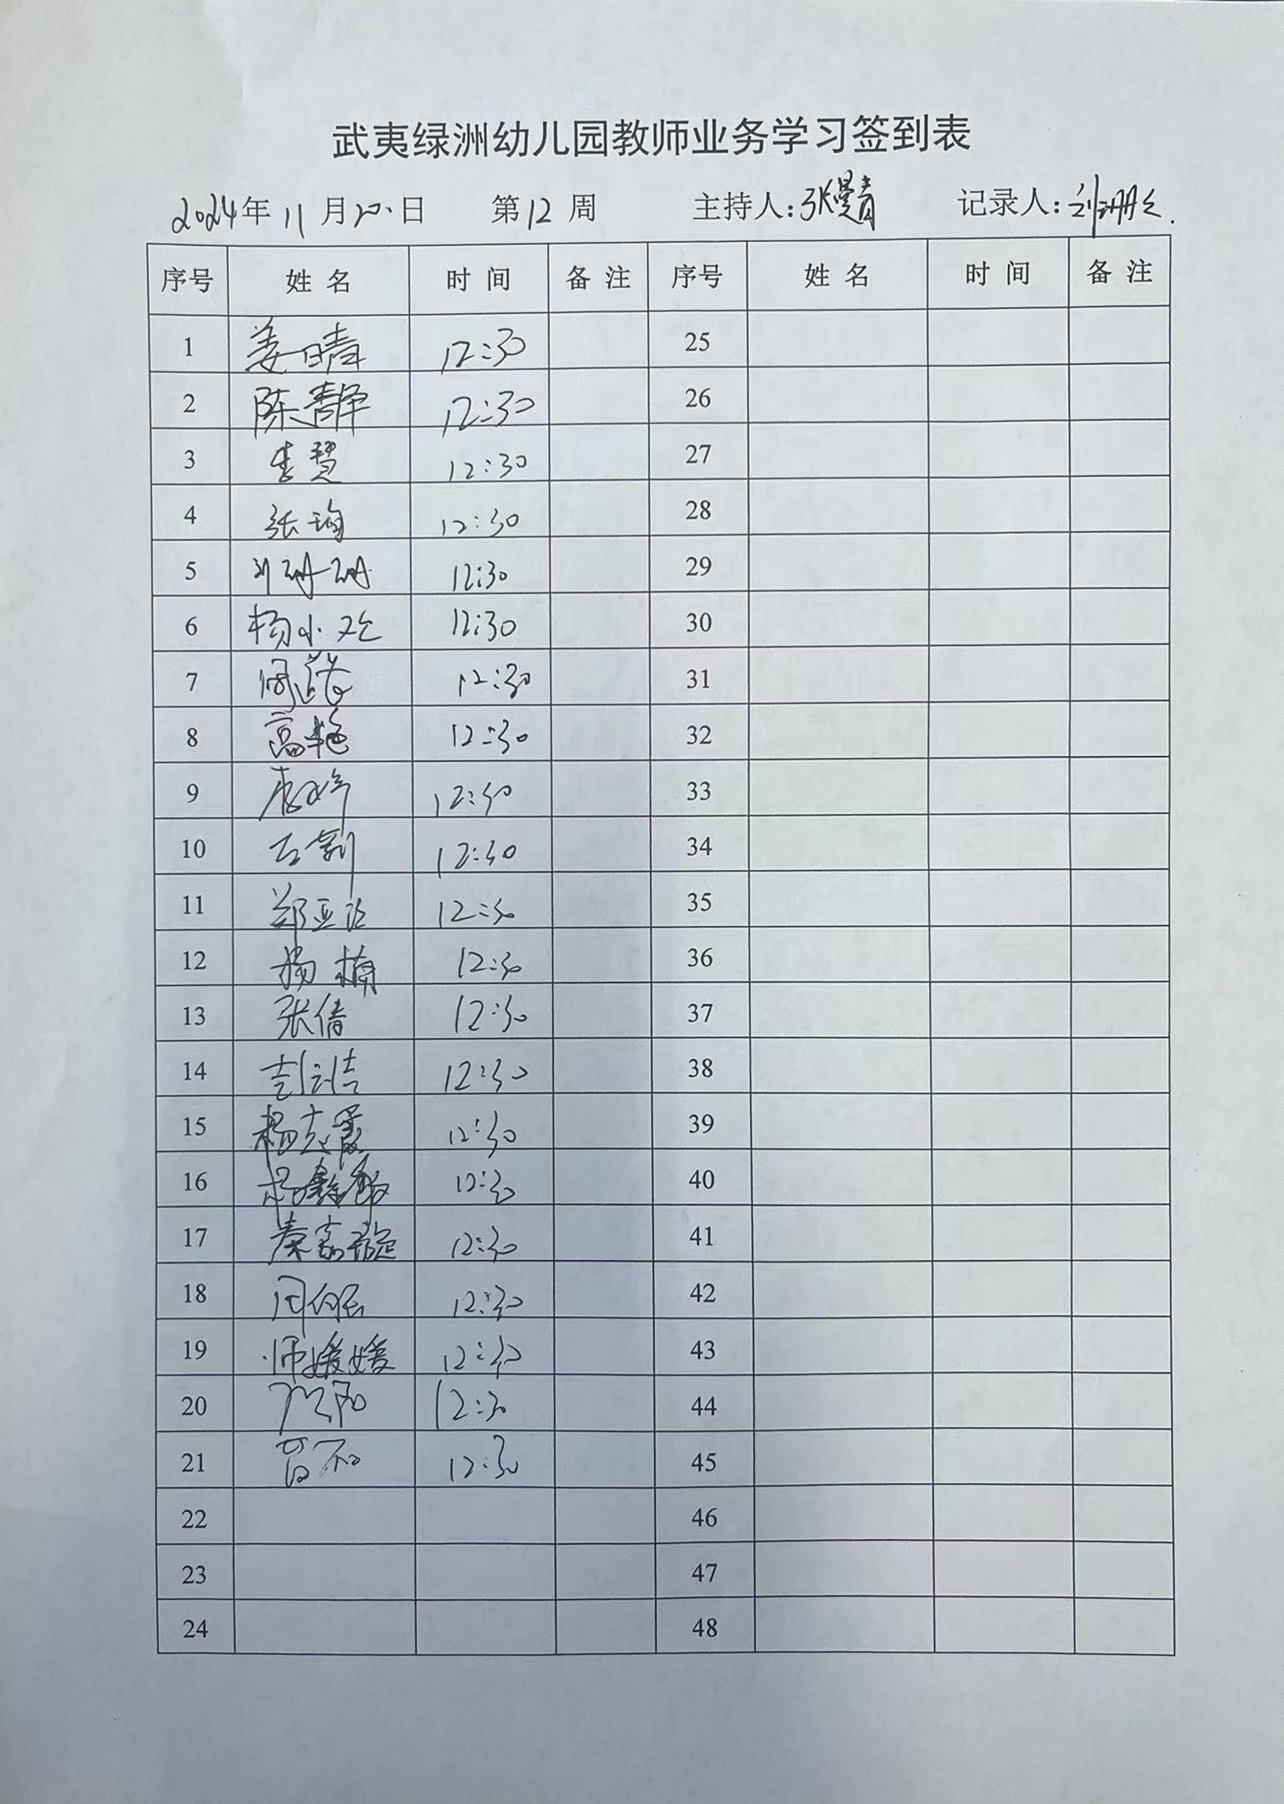 武夷绿洲幼儿园教师业务学习签到表
2024年 11月20.日 第12周 主持人:张曼青 记录人:刘珊珊.
序号 姓名 时间 备注 序号 姓名 时间 备注
1 姜晴 12:30 25
2 陈静 12:30 26
3 李贤 12:30 27
4 张 12:30 28
5 刘珊珊 12:30 29
6 杨小 12:30 30
7 12:30 31
8 高艳 12:30 32
9 12:30 33
10 12:30 34
11 郑亚 12:30 35
12 杨楠 12:30 36
13 张倩 12:30 37
14 12:30 38
15 杨志霞 12:30 39
16 杨鑫 12:30 40
17 秦嘉璇 12:30 41
18 周 12:30 42
19 师媛媛 12:30 43
20 12:30 44
21 12:30 45
22 46
23 47
24 48